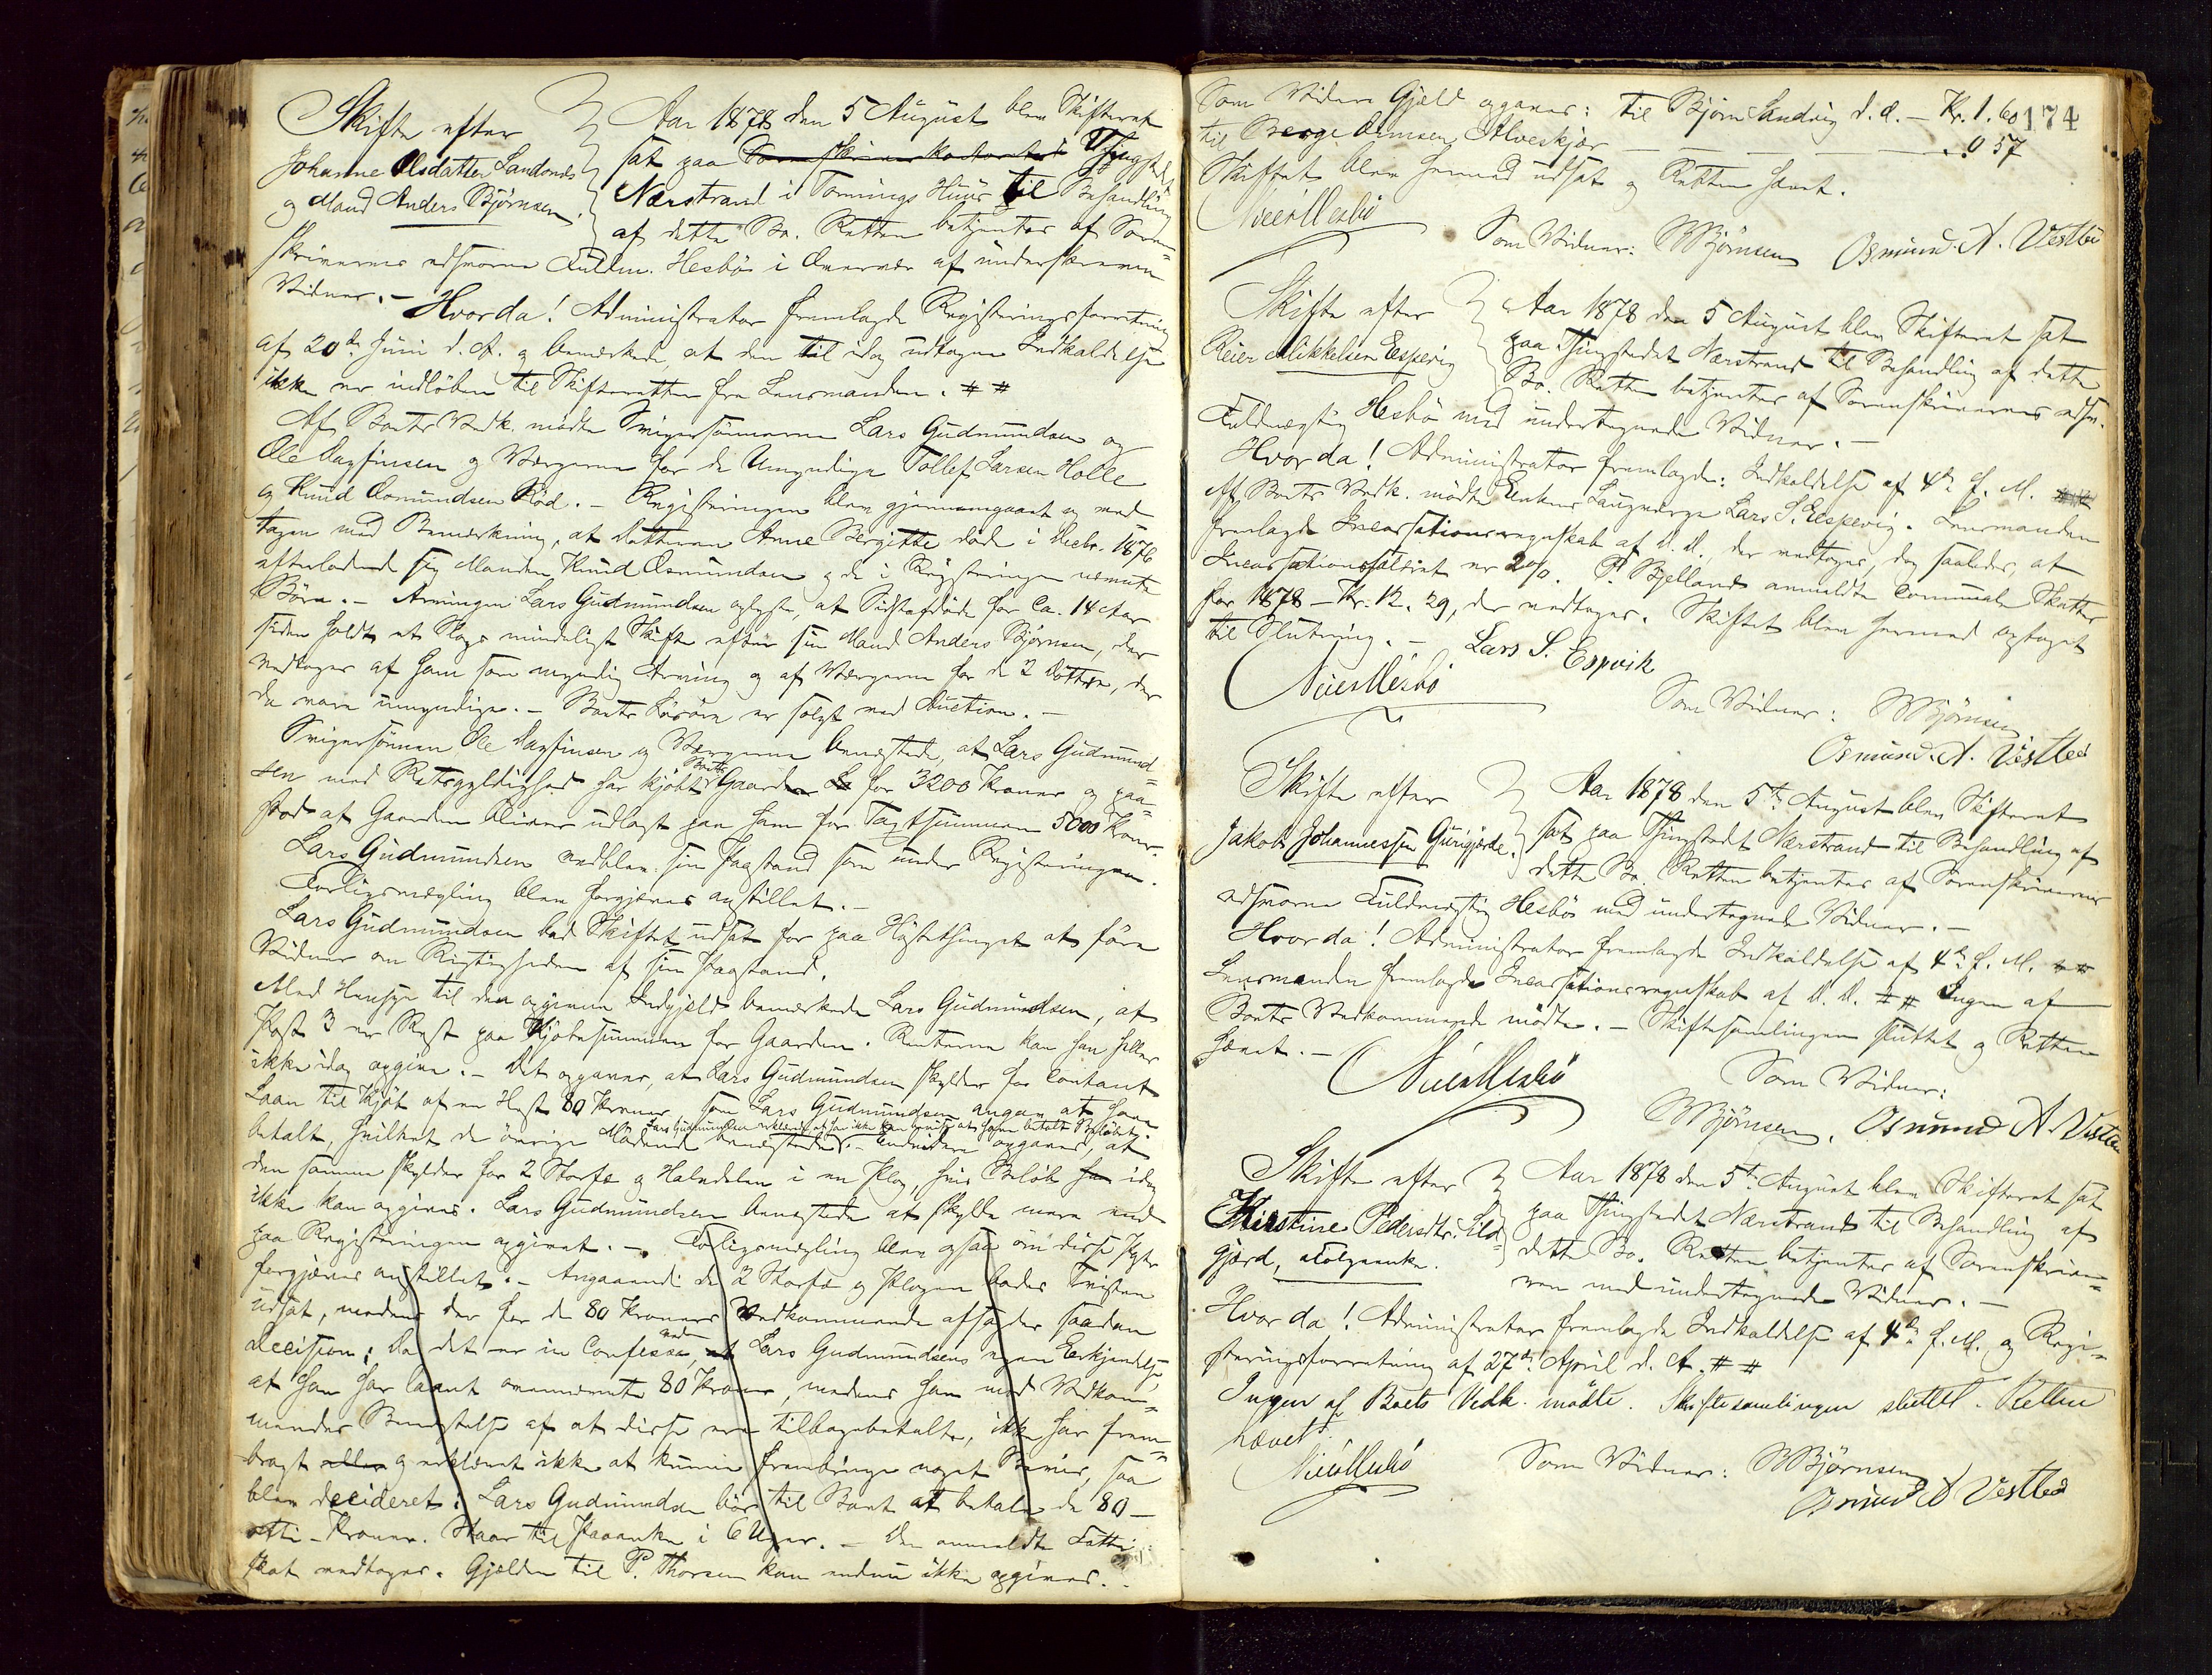 Skifte efter
Johanne Olsdatter Sandanes
og Mand Anders Björnsen.
Aar 1878 den 5 August blev Skifteret
sat paa Sorenskriverkontoret Thingstedet
Nærstrand i Tonnings Huus til Behandling
af dette Bo. Retten betjentes af Soren-
skriverens edsvorne Fuldm. Hesbö i Overvær af underskrevne
Vidner. – Hvorda! Administrator fremlagde Registreringsforretning
af 20de Juni d. A. og bemærkede, at den til idag udtagne Indkaldelse
ikke er indlöben til Skifteretten fra Lensmanden. # #
Af Boets Vedk. mødte Svigersönnerne Lars Gudmundsen og
Ole Dagfinsen og Værgerne for de Umyndige Tollef Larsen Holle
og Knud Osmundsen Röd. – Registreringen blev gjennemgaaet og ved-
tagen med Bemærkning, at Datteren Anne Bergitte döde i Decbr. 1876
efterladende sig Manden Knud Osmundsen og de i Registreringen nævnte
Börn. – Arvingen Lars Gudmundsen oplyste, at Sidstafdöde for Ca. 14 Aar
siden holdt et Slags mindeligt Skifte efter sin Mand Anders Björnsen, der
vedtoges af ham som myndig Arving og af Værgerne for de 2 Döttre, der
da vare umyndige. – Boets Lösöre er solgt ved Auction. –
Svigersönnen Ole Dagfinsen og Værgerne benegtede, at Lars Gudmund-
sen med Retsgyldighed har kjöbt Boets Gaard for 3200 Kroner og paa-
stod at Gaarden bliver udlagt paa ham for Taxtsummen 5000 Kroner.
Lars Gudmundsen vedblev sin Paastand som under Registreringen.
Forligsmægling blev forgjæves anstillet. –
Lars Gudmundsen bad Skiftet udsat for paa Hösttinget at före
Vidner om Rigtigheden af sin Paastand.
Med Hensyn til den opgivne Indgjeld bemærkede Lars Gudmundsen, at
Post 3 er Rest paa Kjöbesummen for Gaarden. Renterne kan han heller
ikke idag opgive. – Det opgaves, at Lars Gudmundsen skylder for Contant
Laan til Kjöb af en Hest 80 Kroner, som Lars Gudmundsen angav at have
Lars Gudmundsen erklærede at han ikke kan bevise at have betalt Belöbet.
betalt, hvilket de övrige Mödende benegtede. – Endvidere opgaves, at
den samme skylder for 2 Storfe og Halvdelen i en Plog, hvis Belöb idag
ikke kan opgives. Lars Gudmundsen benegtede at skylde mere end
paa Registreringen opgivet. – Forligsmægling blev ogsaa om disse Poster
forgjæves anstillet. – Angaaende de 2 Storfe og Plogen bades Tvisten
udsat, medens der for de 80 Kroners Vedkommende afsagdes saadan
Decision: Da det er in Confesso, ved Lars Gudmundsens egen Erkjendelse,
at han har laant ovennævnte 80 Kroner, medens han mod Vedkom-
mendes Benegtelse af at disse ere tilbagebetalte, ikke har frem-
bragt eller og erklæret ikke at kunne frembringe noget Bevis, saa
blev decideret: Lars Gudmundsen bör til Boet at betale de 80 –
otti – Kroner. Staar til Paaanke i 6 Uger. – Den anmeldte Fatti-
skat vedtoges. Gjælden til P. Thorsen kan endnu ikke opgives. –
174
Som videre Gjæld opgaves: til Björn Sandvig d. æ. – Kr. 1.60
til Berge Aamsen Alveskjær – – – „ 0 57
Skiftet blev hermed udsat og Retten hævet.
Som Vidner: BBjörnsen Osmund. A. Vestbö
Skifte efter
Reier Mikkelsen Espevig
Aar 1878 den 5 August blev Skifteret sat
paa Thingstedet Nærstrand til Behandling af dette
Bo. Retten betjentes af Sorenskriverens edsv.
Fuldmægtig Hesbö med undertegnede Vidner. –
Hvorda! Administrator fremlagde: Indkaldelse af 4de f. M. ##
Af Boets Vedk. mödte Enkens Laugværge Lars S. Espevig. Lensmanden
fremlagde Incassationsregnskab af D. D., der vedtoges, dog saaledes, at
Incassationssalæret er 2%. P. Bjelland anmeldte Communale Skatter
for 1878 – Kr. 12.29, der vedtoges. Skiftet blev hermed optaget
til Slutning. – Lars S. Espvik
Som Vidner: BBjörnsen
Osmund. A. Vestbö
Skifte efter
Jakob Johannessen Gurigjerde.
Aar 1878 den 5te August blev Skifteret
sat paa Thingstedet Nærstrand til Behandling af
dette Bo. Retten betjentes af Sorenskriverens
edsvorne Fuldmægtig Hesbö med undertegnede Vidner. –
Hvorda! Administrator fremlagde Indkaldelse af 4de f. M. ##
Lensmanden fremlagde Incassationsregnskab af D. D. # # Ingen af
Boets Vedkommende mödte. – Skiftesamlingen sluttet og Retten
hævet. –
Som Vidner:
BBjörnsen. Osmund A Vestbö
Skifte efter
Kirstine Pedersdtr. Lid-
gjerd,
Aar 1878 den 5te August blev Skifteret sat
paa Thingstedet Nærstrand til Behandling af
dette Bo. Retten betjentes af Sorenskrive-
ren med undertegnede Vidner. –
Hvorda! Administrator fremlagde Indkaldelse af 4de f. M. og Regi-
streringsforretning af 27de April d. A. # #
Ingen af Boets Vedk. mödte. Skiftesamlingen sluttet. Retten
hævet.
Som Vidner: BBjörnsen
Osmund A Vestbö